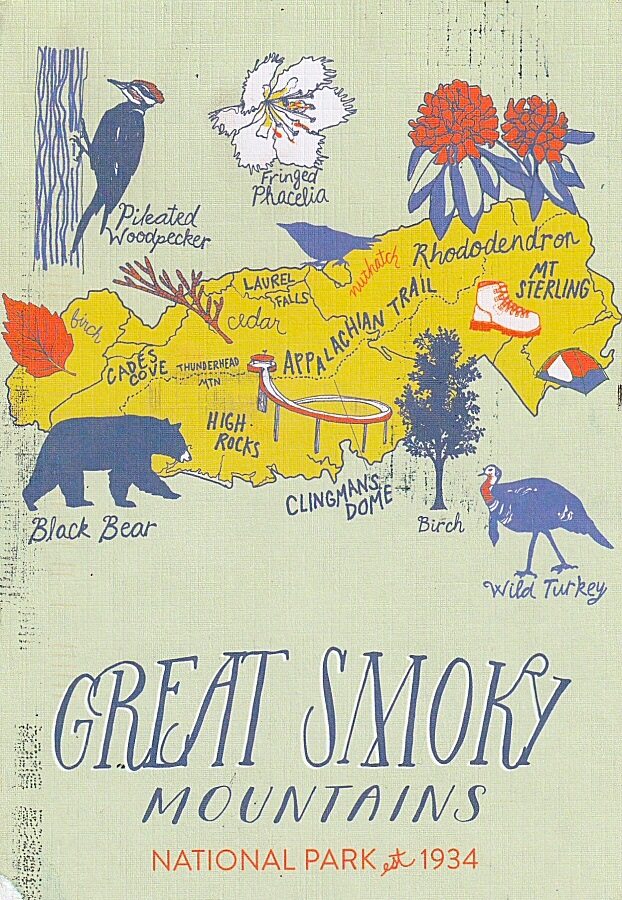 Pileated
Woodpecker
Fringed
Phacelia
Rhododendron
nuthatch
LAUREL
FALLS
MT
STERLING
birch
cedar
APPALACHIAN TRAIL
CADES
COVE
THUNDERHEAD
MTN
HIGH
ROCKS
CLINGMAN'S
DOME
Black Bear
Birch
Wild Turkey
GREAT SMOKY
MOUNTAINS
NATIONAL PARK est 1934